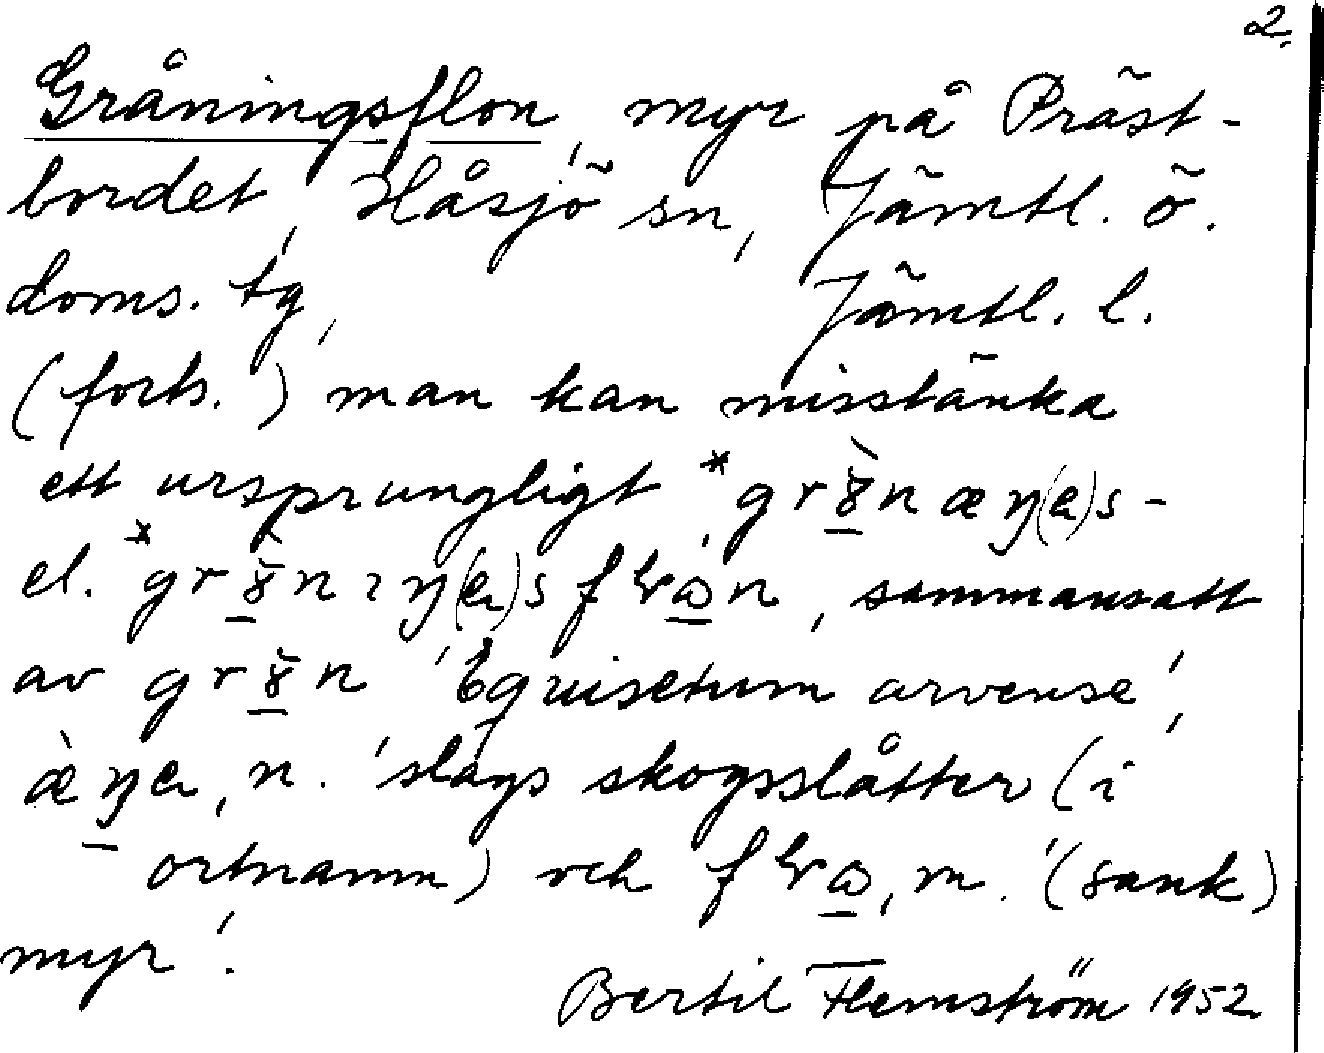 2.
Gråningsflon, myr på Präst-
bordet, Håsjö sn, Jämtl. ö.
doms. tg, Jämtl. l.
(forts.) man kan misstänka
ett ursprungligt
el. sammansatt
av 'Equisetum arvense',
n. 'slags skogsslåtter (i
ortnamn) och m. '(sank)
myr'.
Bertil Flemström 1952